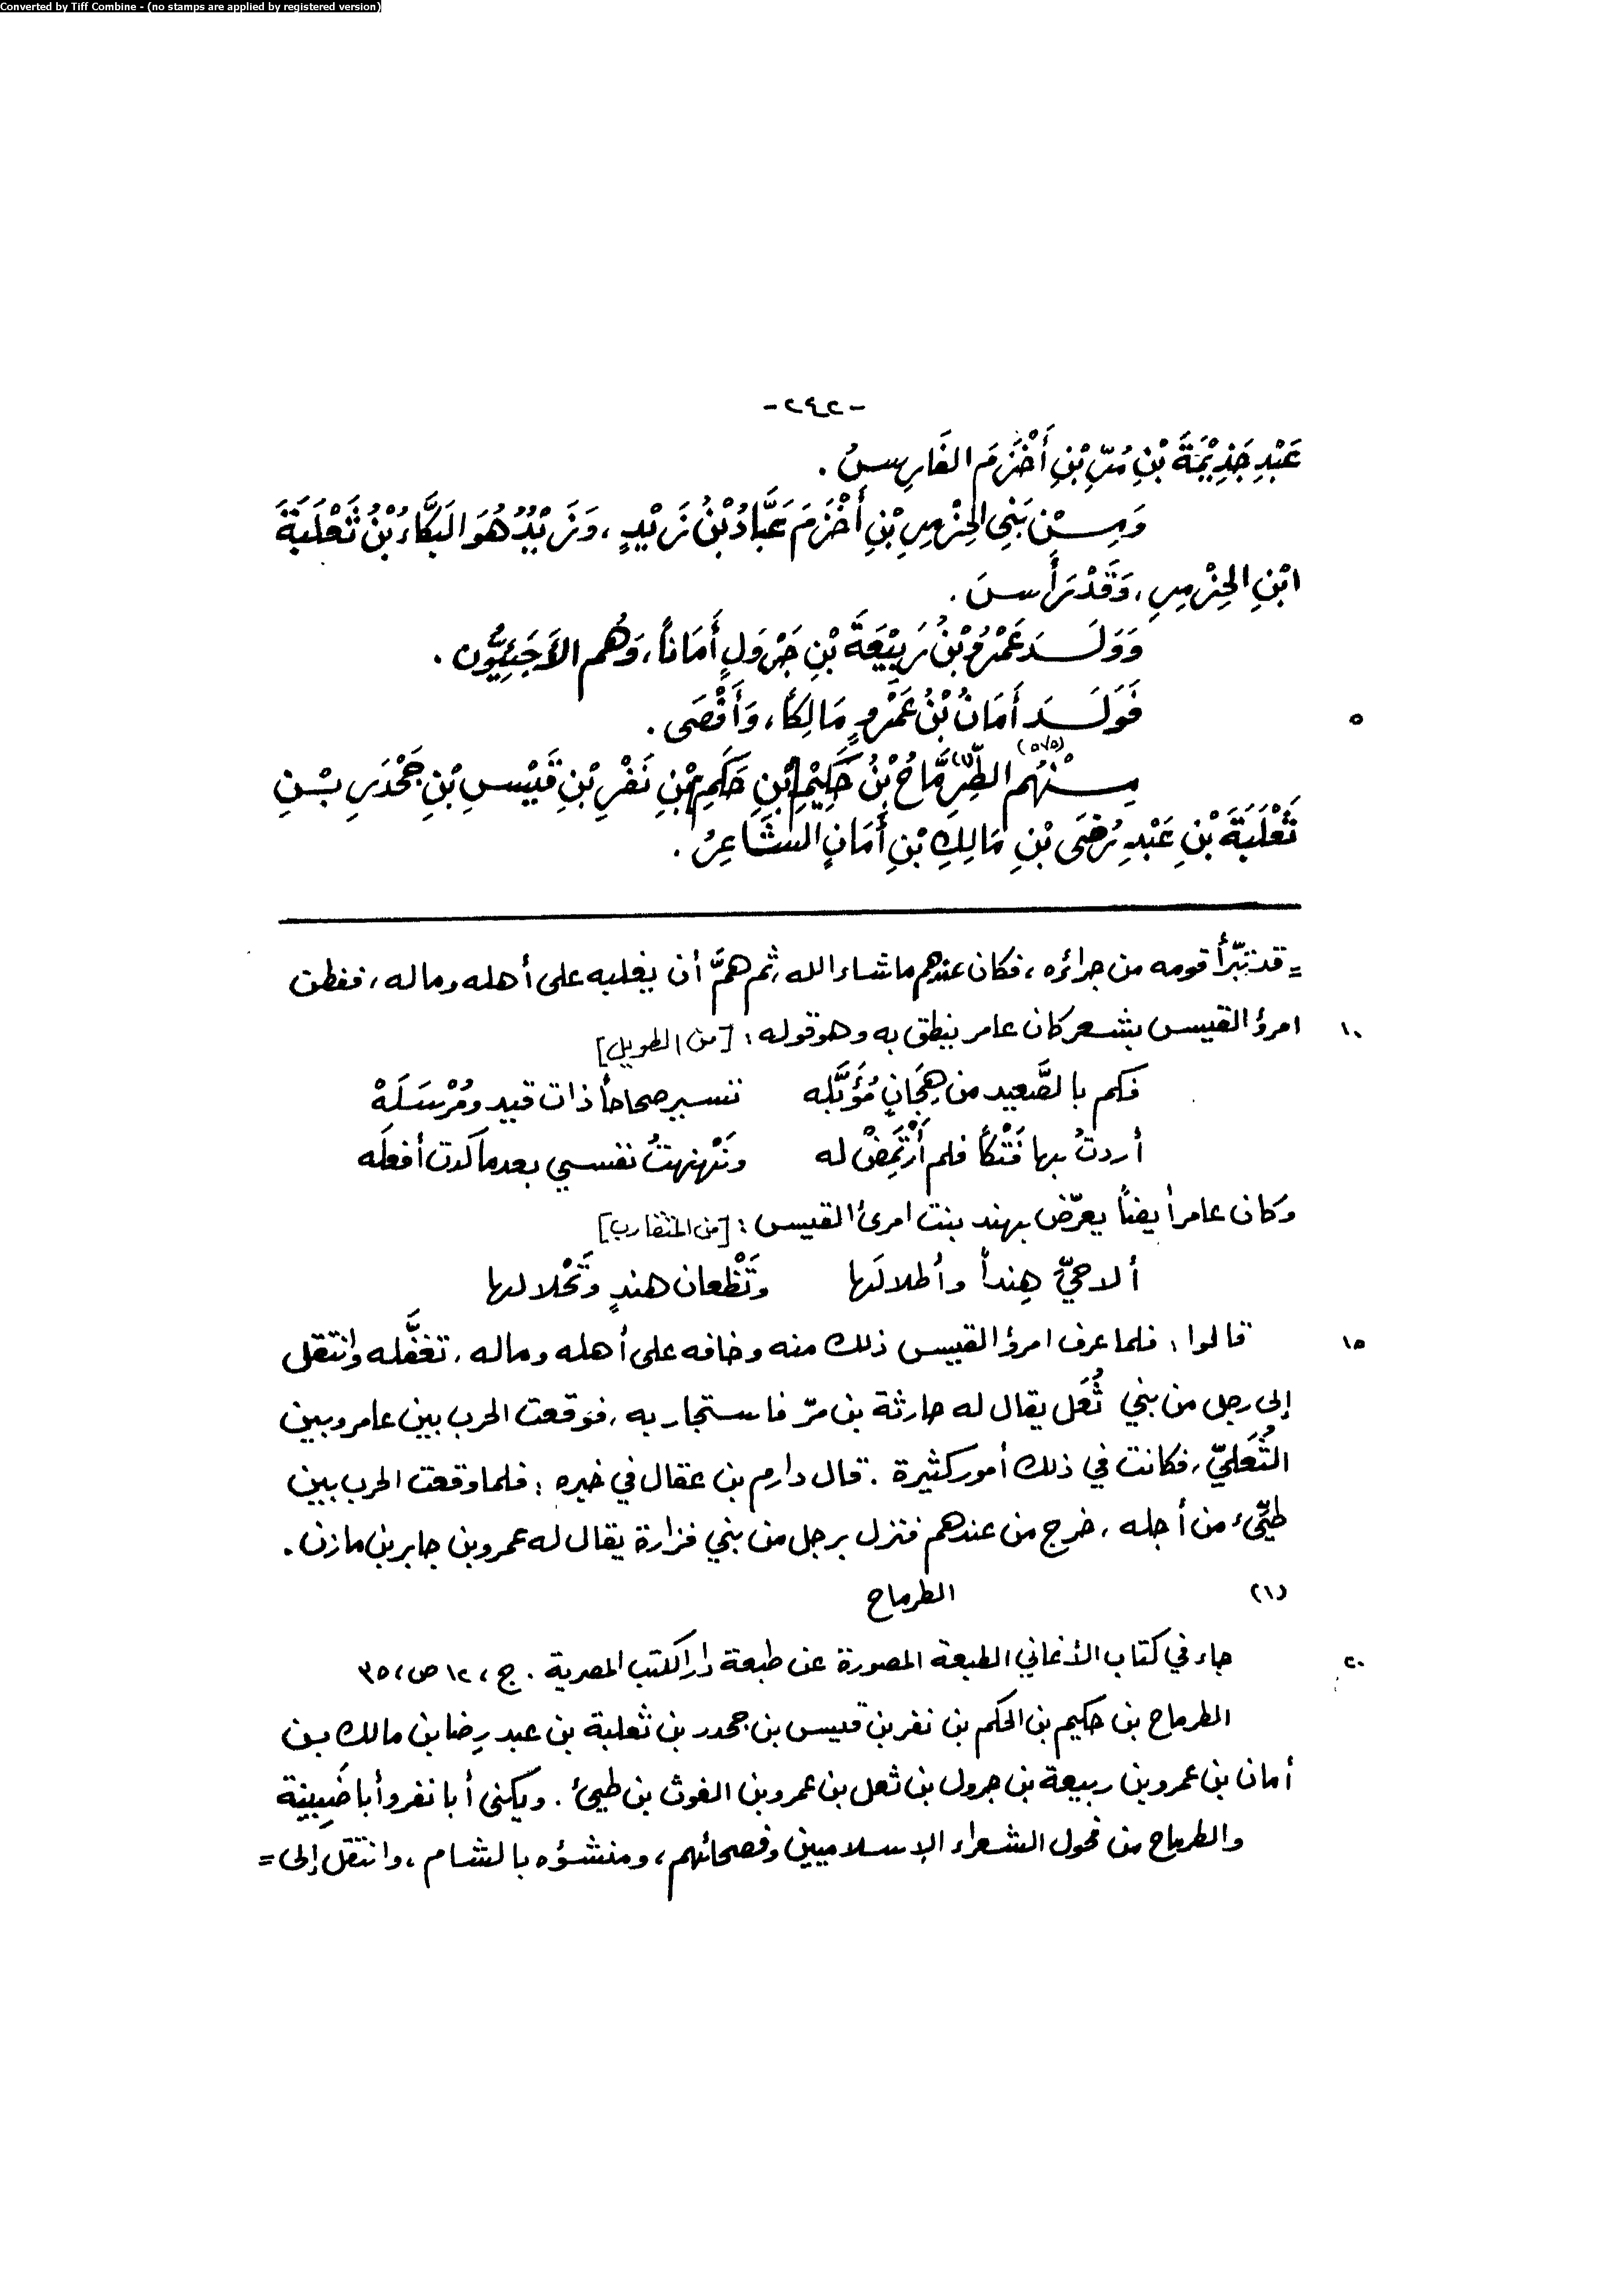 Converted by Tiff Combine - (no stamps are applied by registered version)
-٢٤٢-
عَبْدِ جَذِيْمَةَ بْنِ مُرِّ بْنِ أَخْزَمَ الفَارِسُ .
وَمِنْ بَنِي الحِزْمِرِ بْنِ أَخْزَمَ عَبَّادُ بْنُ زَيْدٍ ، وَزَيْدٌ هُوَ البَكَّاءُ بْنُ ثَعْلَبَةَ
ابْنِ الحِزْمِرِ ، وَقَدْ رَأَسَ .
وَوَلَدَ عَمْرُو بْنُ رَبِيْعَةَ بْنِ جَرْوَلٍ أَمَاناً ، وَهُم الأَجَئِيُّون .
٥ فَوَلَدَ أَمَانُ بْنُ عَمْرٍو مَالِكاً ، وَأَقْصَى .
مِنْهُم (٥٧٥) الطِّرِمَّاحُ (١) بْنُ حَكِيْمِ بْنِ حَكَمِ بْنِ نَفْرِ بْنِ قَيْسِ بْنِ جَحْدَرِ بْنِ
ثَعْلَبَةَ بْنِ عَبْدِ رُضَى بْنِ مَالِكِ بْنِ أَمَانٍ الشَّاعِرُ .
= قد تبّرأ قومه من جرائره ، فكان عندهم ما شاء الله ، ثم همَّ أن يغلبه على أهله وماله ، ففطن
١٠ امرؤ القيس بشعر كان عامر ينطق به وهو قوله : [من الطويل]
فكم بالصَّعيد من هِجَانٍ مُؤَبَّله تسير صحاحاً ذات قيد ومُرْسَلَهْ
أردتُ بها فَتْكاً فلم أَرْتَمِضْ له ونَهْنهتُ نفسي بعدما كدت أفعلَه
وكان عامر أيضاً يعرّض بهند بنت امرئ القيس : [من المتقارب]
ألا حيِّ هِنداً وأطلالَها وتَظْعان هندٍ وتَحْلالها
١٥ قالوا : فلما عرف امرؤ القيس ذلك منه وخافه على أهله وماله ، تغفَّله وانتقل
إلى رجل من بني ثُعَل يقال له حارثة بن مرّ فاستجار به ، فوقعت الحرب بين عامر وبين
الثُّعَليّ ، فكانت في ذلك أمور كثيرة . قال دارم بن عقال في خبره : فلما وقعت الحرب بين
طيّئ من أجله ، خرج من عندهم فنزل برجل من بني فزارة يقال له عمرو بن جابر بن مازن .
(١) الطرماح
٢٠ جاء في كتاب الأغاني الطبعة المصورة عن طبعة دار الكتب المصرية . ج ، ١٢ ص ، ٣٥
الطرماح بن حكيم بن الحكم بن نفر بن قيس بن جحدر بن ثعلبة بن عبد رِضا بن مالك بن
أمان بن عمرو بن ربيعة بن جرول بن ثعل بن عمرو بن الغوث بن طيئ . ويكنى أبا نفر وأبا ضَبِينة
والطرماح من فحول الشعراء الإسلاميين وفصحائهم ، ومنشؤه بالشام ، وانتقل إلى =